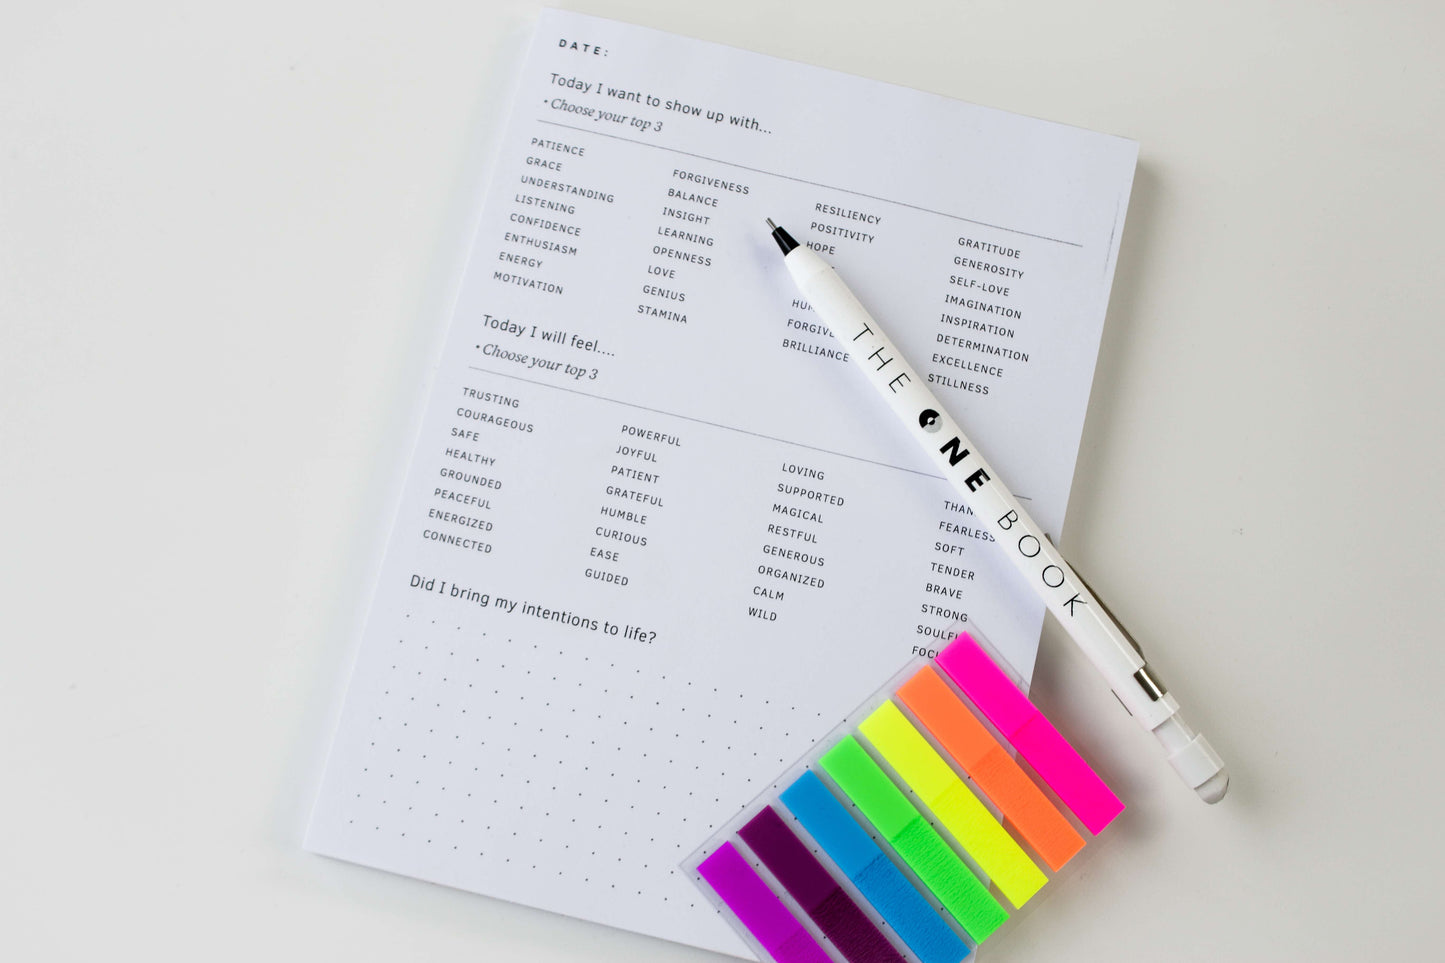 DATE:
Today I want to show up with...
• Choose your top 3
PATIENCE
GRACE
UNDERSTANDING
LISTENING
CONFIDENCE
ENTHUSIASM
ENERGY
MOTIVATION
FORGIVENESS
BALANCE
INSIGHT
LEARNING
OPENNESS
LOVE
GENIUS
STAMINA
RESILIENCY
POSITIVITY
HOPE
BRILLIANCE
GRATITUDE
GENEROSITY
SELF-LOVE
IMAGINATION
INSPIRATION
DETERMINATION
EXCELLENCE
STILLNESS
Today I will feel....
• Choose your top 3
TRUSTING
COURAGEOUS
SAFE
HEALTHY
GROUNDED
PEACEFUL
ENERGIZED
CONNECTED
POWERFUL
JOYFUL
PATIENT
GRATEFUL
HUMBLE
CURIOUS
EASE
GUIDED
LOVING
SUPPORTED
MAGICAL
RESTFUL
GENEROUS
ORGANIZED
CALM
WILD
FEARLESS
SOFT
TENDER
BRAVE
STRONG
Did I bring my intentions to life?
THE ONE BOOK